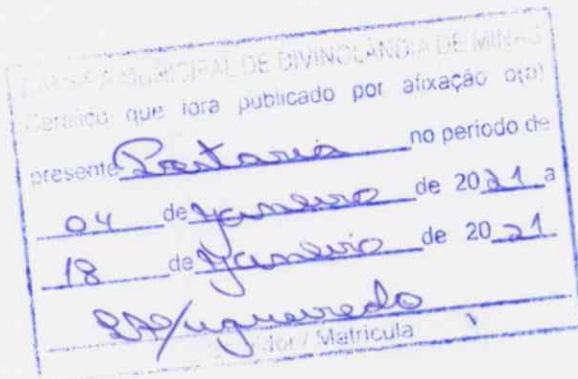 CÂMARA MUNICIPAL DE DIVINOLÂNDIA DE MINAS
Certifico que fora publicado por afixação o(a)
presente Portaria no período de
04 de Janeiro de 2021 a
18 de Janeiro de 2021
Servidor / Matrícula